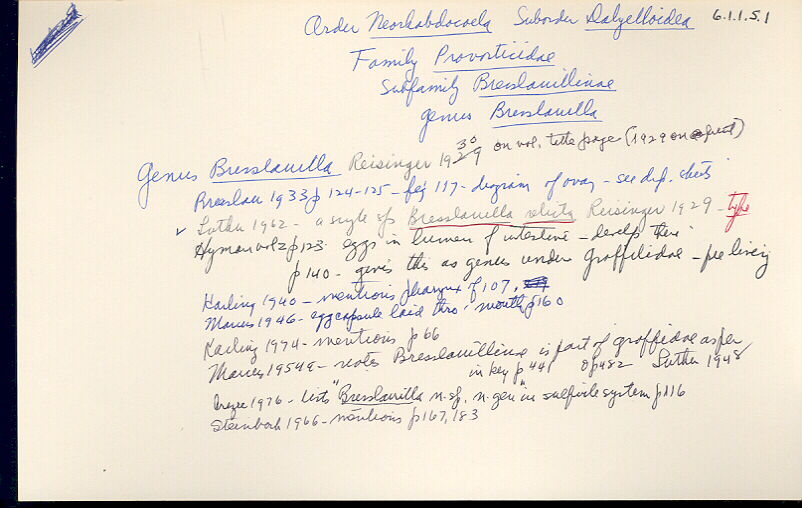 Order Neorhabdocoela Suborder Dalyellioidea 6.1.1.5.1
Family Provorticidae
Subfamily Bresslauillinae
genus Bresslauilla
Genus Bresslauilla Reisinger 1929 30 on vol. title page (1929 on reprint)
Bresslau 1933 p 124-125 - fig 117 - diagram of ovary - see dup. sheets
✓ Luther 1962 - a single sp Bresslauilla relicta Reisinger 1929 - type
Hyman vol 2 p 123 eggs in lumen of intestine - develop there
p 140 - gives this as genus under Graffillidae - free living
Karling 1940 - mentions pharynx f 107,
Marcus 1946 - egg capsule laid thro' mouth p 160
Karling 1974 - mentions p 66
Marcus 1954a - notes Bresslauillinae is part of graffidae as per
in key p 441 of p 482 Luther 1948
1976 - lists "Bresslauilla n. sp. n. gen" in sulfide system p 116
Steinbock 1966 - mentions p 167, 183